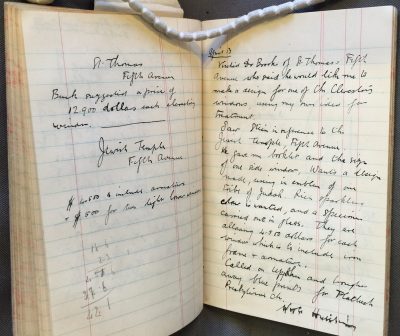 St. Thomas
Fifth Avenue
Bunk suggested a price of
12,900 dollars each clerestory
window.
Jewish Temple
Fifth Avenue
$ 4,500 to include armature
$ 500 for two light lower windows
April 13
Visited Dr Brooks of St Thomas's Fifth
Avenue who said he would like me to
make a design for one of the Clerestory
windows, using my own ideas for
treatment.
Saw Stein in reference to the
Jewish Temple, Fifth Avenue.
He gave me booklet and the size
of one side window, Wants a design
made, using in emblem of one
tribe of Judah. Rich sparkling
colour is wanted, and a specimen
carried out in glass. They are
allowing 4,500 dollars for each
window which is to include iron
frame & armature.
Called on and brought
away blue prints for
Presbyterian Ch.